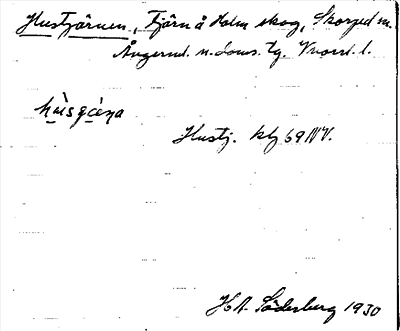 Hustjärnen, Tjärn å Holm skog, Skorped sn.
Ångerml. n. doms. tg. Vnorrl. l.
hùsçæ̀ɳa
Hustj. kbl 69 NV.
H. A. Söderberg 1930